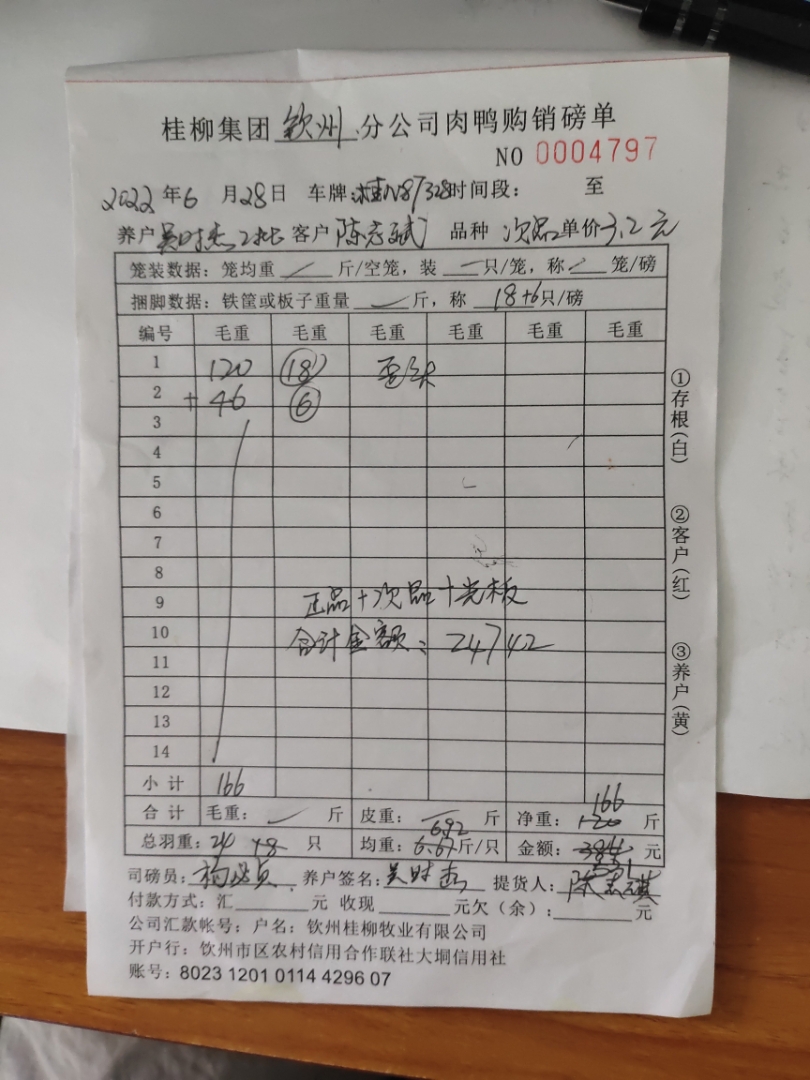 桂柳集团 钦州 分公司肉鸭购销磅单
NO 0004797
2022 年 6 月 28 日 车牌：桂N87328 时间段： 至
养户 吴时杰 2批 客户 陈 斌 品种 次品 单价 3.2 元
笼装数据：笼均重 斤/空笼，装 只/笼，称 笼/磅
捆脚数据：铁筐或板子重量 斤，称 18+6 只/磅
编号 毛重 毛重 毛重 毛重 毛重 毛重
1 120 18 歪头
2 +46 6
3
4
5
6
7
8
9 正品+次品+光板
10 合计金额：24742
11
12
13
14
小 计 166
合 计 毛重： 斤 皮重： 斤 净重： 120 166 斤
总羽重：24 18 只 均重：6.67 6.92 斤/只 金额：384 531 元
司磅员： 养户签名：吴时杰 提货人：陈
付款方式：汇 元 收现 元欠（余）： 元
公司汇款帐号：户名：钦州桂柳牧业有限公司
开户行：钦州市区农村信用合作联社大垌信用社
账号：8023 1201 0114 4296 07
①存根（白）
②客户（红）
③养户（黄）